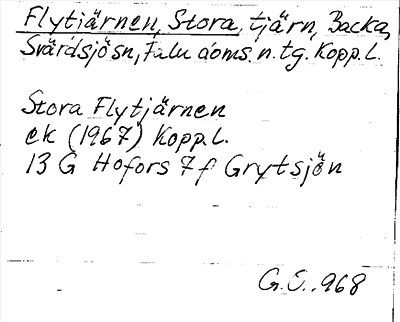 Flytjärnen, Stora, tjärn, Backa,
Svärdsjösn, Falu doms. n. tg. Kopp. L.
Stora Flytjärnen
ek (1967) Kopp. L.
13 G Hofors 7 f Grytsjön
G.E. 1968